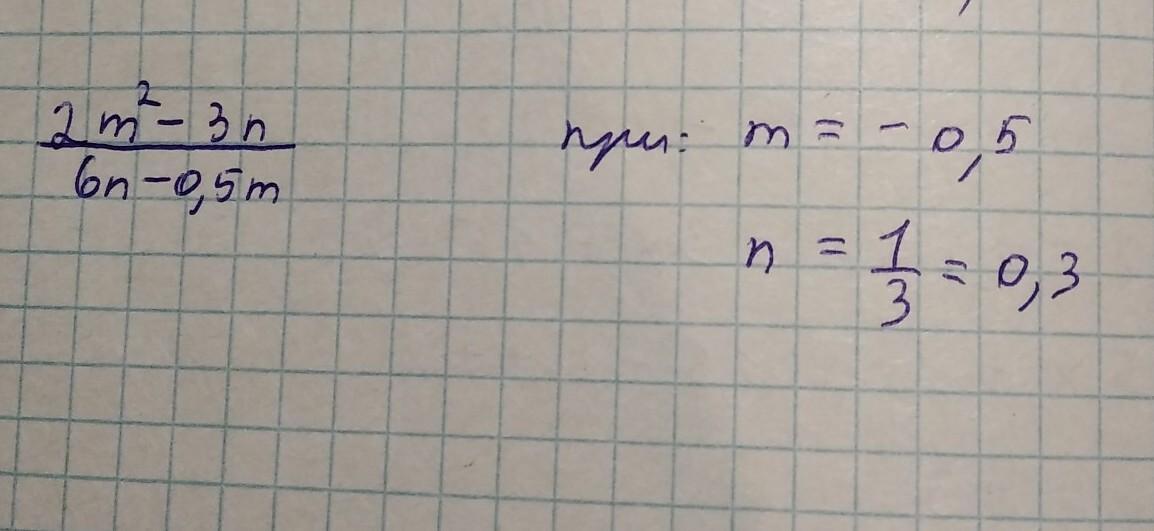 2m² - 3n
6n - 0,5m
при: m = - 0,5
n = 1/3 = 0,3